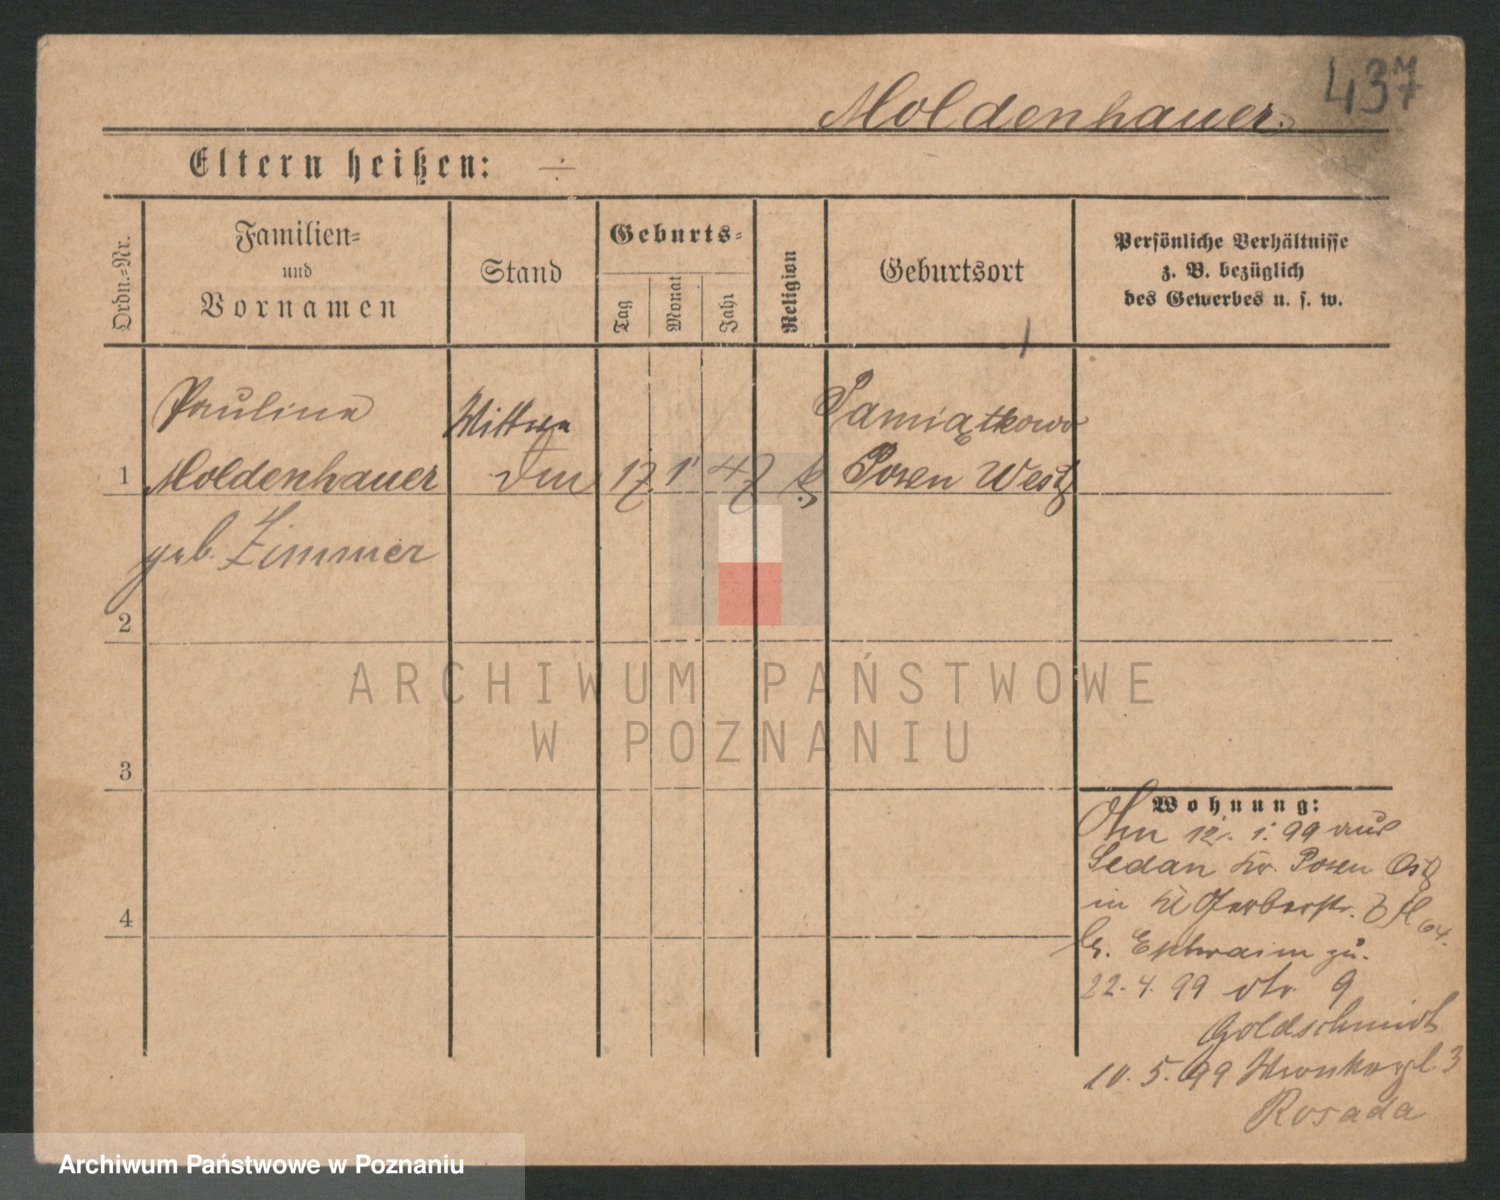 437
Moldenhauer.
Eltern heißen: ÷
Ordn.-Nr.
Familien-
und
Vornamen
Stand
Geburts-
Tag
Monat
Jahr
Religion
Geburtsort
Persönliche Verhältnisse
z. B. bezüglich
des Gewerbes u. s. w.
Pauline
Wittwe
Pamiątkowo
1
Moldenhauer
17
1
47
Posen West
geb. Zimmer
2
ARCHIWUM PAŃSTWOWE
W POZNANIU
3
Wohnung:
12. 1. 99 aus
Sedan Kr. Posen Ost
in Kl Gerberstr. 7
b. Ephraim zu.
4
22. 4. 99 dto. 9
Goldschmidt
10. 5. 99 Wronkerpl. 3
Rosada
Archiwum Państwowe w Poznaniu